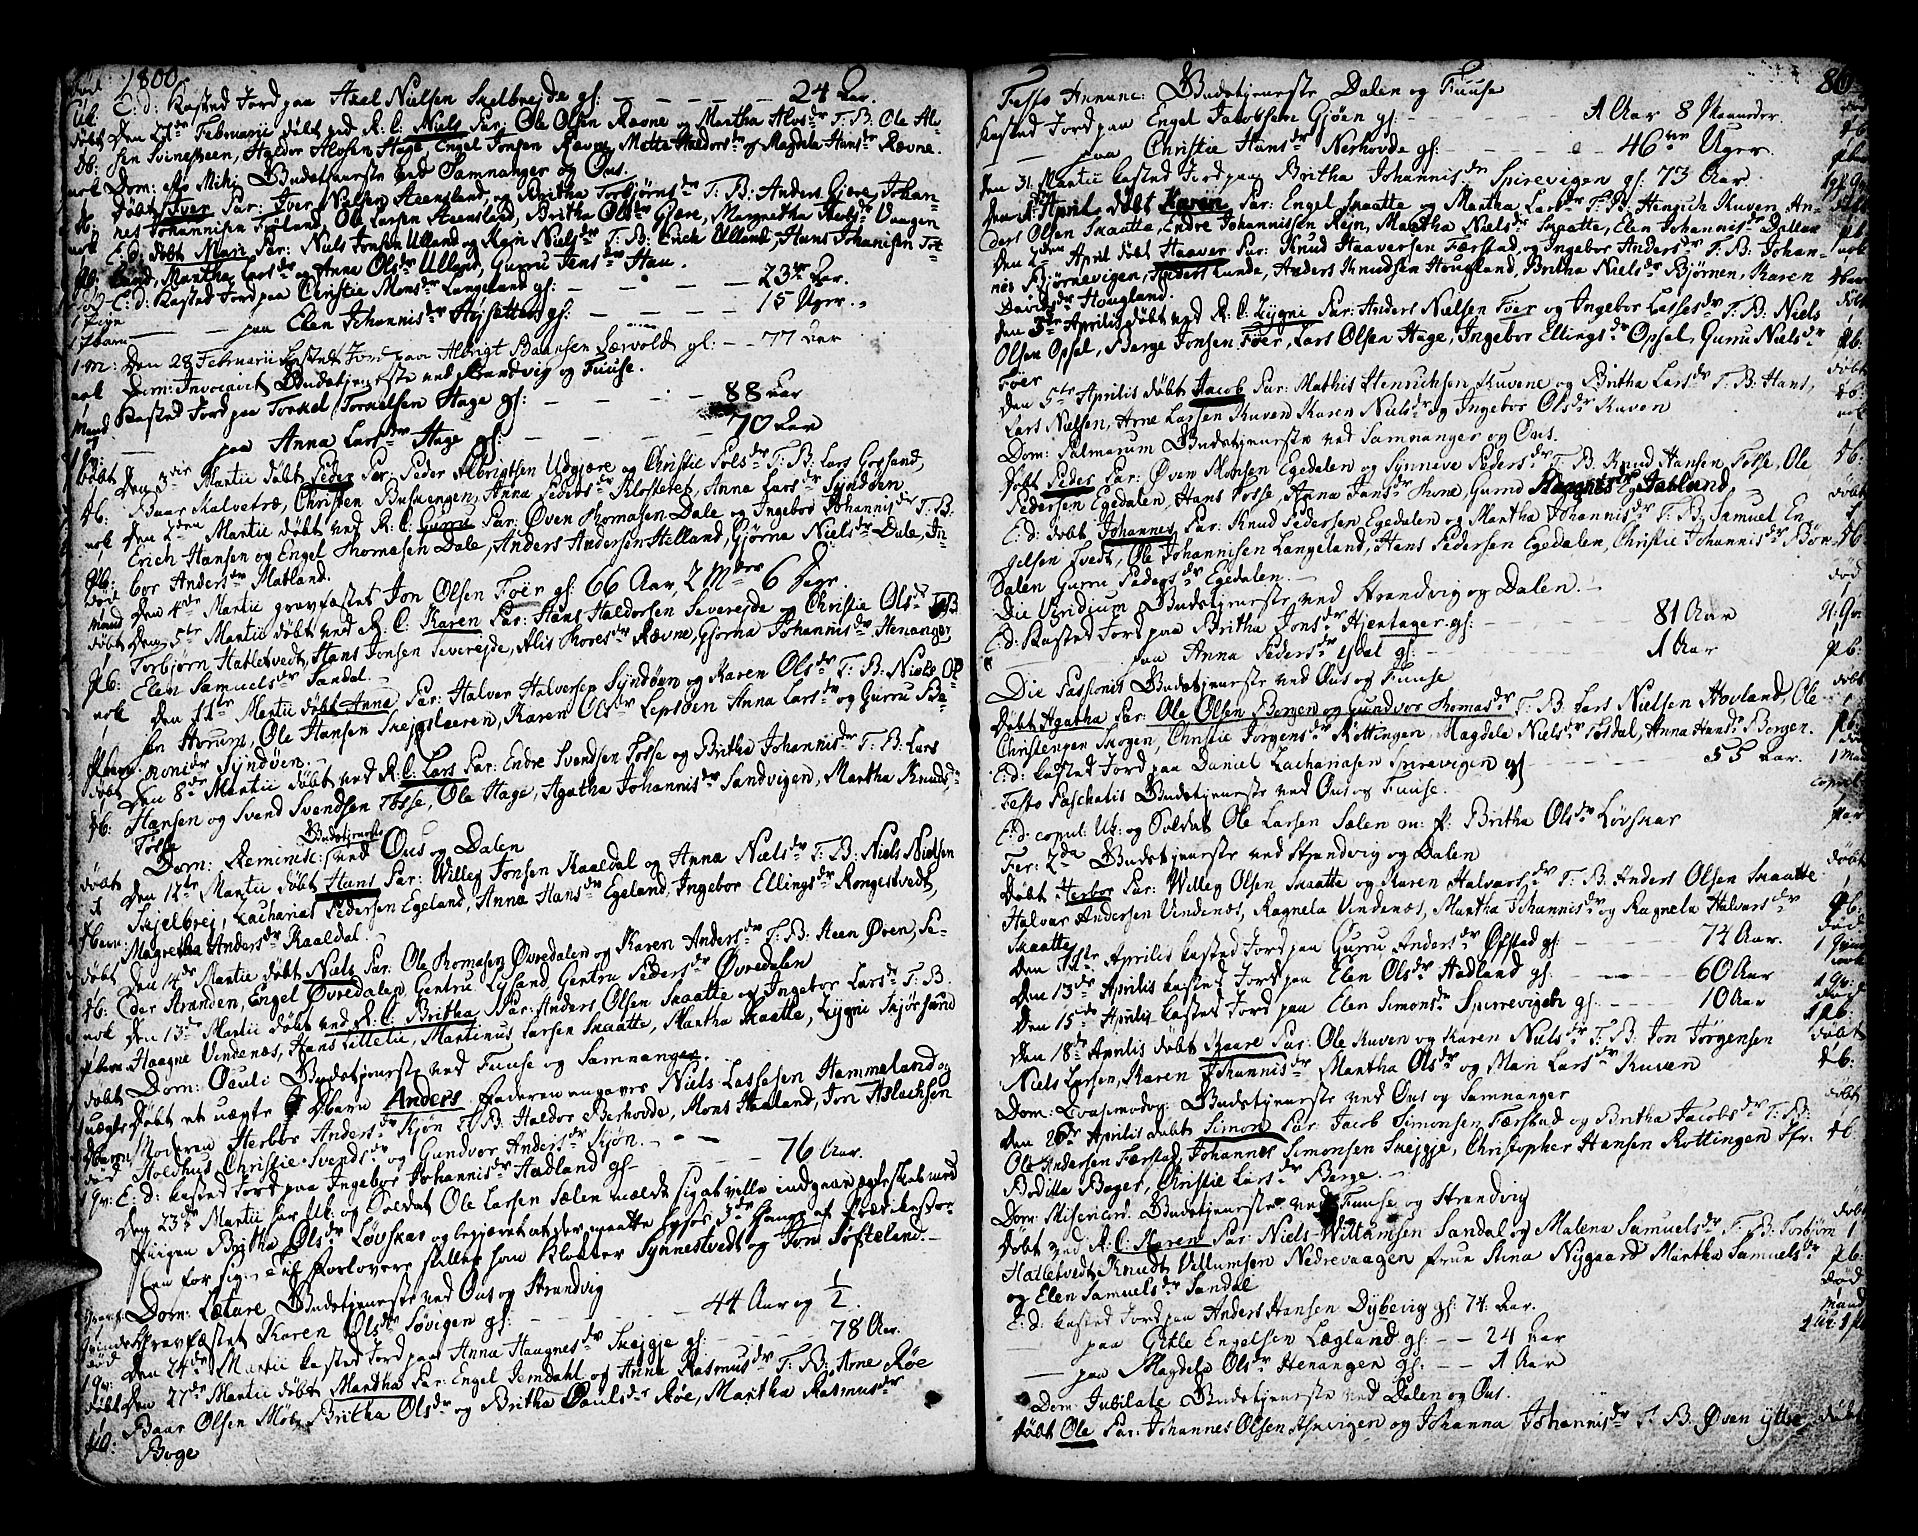 1800
E: d: Kasted Jord paa Axel Nielsen Skelbrejde gl: — — — — 24 Aar.
Den 27de Februarii døbt ved R. C. Niels Par: Ole Olsen Røvne og Martha Alvsdr T: B: Ole Al-
sen Svinesheen, Haldor Alvsen Hage, Engel Jonsen Røvne, Mette Haldorsdr og Magdela Hansdr Røvne.
Dom: esto Mihi Gudstjeneste ved Samnanger og Ous.
døbt Iver Par: Iver Nielsen Aeensland og Britha Torbjørnsdr T: B: Anders Gjære, Johan-
nes Johannisen Fæland, Ole Larsen Aeensland, Britha Olsdr Gjære, Margretha Nielsdr Vaagen
E. d. døbt Mari Par: Niels Jonsen Ulland og Kejn Nielsdr T: B: Erich Ulland, Hans Johanisen Tve-
land, Martha Larsdr og Anna Olsdr Ulland, Gurru Jensdr Hau.
E: d: Kasted Jord paa Christie Monsdr Langeland gl: — — — 23de Aar.
— — paa Elen Johannisdr Høysetter gl: — — — 15 Uger.
Den 28 Februarii kasted Jord paa Albrigt Baansen Særvold gl: — — 77 Aar
Dom: Invocavit Gudstjeneste ved Strandvig og Fuuse.
Kasted Jord paa Torkel Torkelsen Hage gl: — — — 88 Aar
— paa Anna Larsdr Hage gl: — — — 70 Aar
den 3die Martii døbt Peder Par: Peder Albrigtsen Udgjære og Christie Polsdr T: B: Lars Gogsand,
Baar Kalvetræ, Christen Buskengen, Anna Pedersdr Klosteret, Anna Larsdr Syndøen
den 2den Martii døbt ved R. C. Gurru Par: Øven Thomasen Dale og Ingebor Johannisdr T: B:
Erich Hansen og Engel Thomasen Dale, Anders Andersen Helland, Gjørna Nielsdr Dale, In-
bor Andersdr Matland.
den 4de Martii gravfæstet Jon Olsen Føer gl: 66 Aar, 2 Mdr 6 Dage.
den 5te Martii døbt ved R. C. Karen Par: Hans Haldorsen Severejde og Christie Olsdr T: B:
Torbjørn Hatletvedt, Hans Jonsen Severejde, Alis Thoresdr Røvne, Gjørna Johannisdr Henanger
Elen Samuelsdr Sandal.
den 11te Martii døbt Anna Par: Halver Halversen Syndøen og Karen Olsdr T: B: Niels Ol-
sen Horum, Ole Hansen Skejgsteeren, Karen Olsdr Lepsøen Anna Larsdr og Gurru Pe-
ronedr Syndøen.
Den 8de Martii døbt ved R. C. Lars Par: Endre Svendsen Tosse og Britha Johannisdr T: B: Lars
Hansen og Svend Svendsen Tosse, Ole Hage, Agatha Johannisdr Sandvigen, Martha Knudsdr
Tosse
Dom: Reminisc: Gudstjeneste ved Ous og Dalen
den 12te Martii døbt Hans Par: Willeg Jonsen Kaaldal og Anna Nielsdr T: B: Niels Nielsen
Skjelbrej, Zacharias Pedersen Egeland, Anna Hansdr Egeland, Ingebor Ellingsdr Rongestvedt,
Magretha Andersdr Kaaldal.
den 14de Martii døbt Niels Par: Ole Thomasen Øvredalen og Karen Andersdr T: B: Steen Øren, Pe-
der Stranden, Engel Øvredalen, Gentru Lysand, Gentru Pedersdr Øvredalen
den 13de Martii døbt ved R. C. Britha Par: Anders Olsen Skaatte og Ingebor Larsdr T: B:
Haagne Vendenæs, Hans Littletu, Martinus Larsen Skaatte, Martha Skaatte, Zygni Skjørsand
Dom: Oculi Gudstjeneste ved Fuuse og Samnanger.
Døbt et uægte Pbarn Anders Faderen angaves Niels Lassesen Hammeland og
Moderen Herbor Andersdr Kjøn T: B: Haldor Berhovde, Mons Haaland, Jon Aslachsen
Holdhus Christie Svendsdr og Gundvor Andersdr Kjøn.
E: d: kasted Jord paa Ingebor Johannisdr Hadland gl — — — 76 Aar.
Den 23de Martii har Uk: og Soldat Ole Larsen Sælen meldt sig at ville indgaae egteskab med
Piigen Britha Olsdr Løvskar og begjæret at der maatte lyses 3de Gange af Prædikesto-
len for sig. Til Forlovere stillet han Klokker Synnestvedt og Jon Søfteland.
Dom: Lætare Gudstjeneste ved Ous og Strandvig
Gravfæstet Karen Olsdr Søvigen gl: — — — 44 Aar og ½.
den 24de Martii kasted Jord paa Anna Haagnesdr Skejgje gl: — — — 78 Aar.
Den 27de Martii døbt Martha Par: Engel Jemdahl og Anna Rasmusdr T: B: Arne Røe
Baar Olsen Møbz, Britha Olsdr og Britha Paulsdr Røe, Martha Rasmusdr
Boge
Festo Annunc: Gudstjeneste Dalen og Fuuse
Kasted Jord paa Engel Jacobsen Gjøen gl: — — — 1 Aar 8 Maaneder.
— paa Christie Hansdr Nerhovde gl: — — — 46tre Uger.
den 31 Martii kasted Jord paa Britha Johannisdr Spirevigen gl: 73 Aar
den 1ste April døbt Karen Par: Engel Skaatte og Martha Larsdr T: B: Henrich Kuven, An-
ders Olsen Skaatte, Endre Johannissen Rejn, Martha Nielsdr Skaatte, Elen Johannisdr Dallan
den 2den April døbt Haaver Par: Knud Haaversen Færstad og Ingebor Andersdr T: B: Johan-
nes Bjørnevigen, Anders Lunde, Anders Knudsen Hougland, Britha Nielsdr Bjørnen, Karen
Davidsdr Hougland.
den 3die Aprilis døbt ved R. C. Zygni Par: Anders Nielsen Føer og Ingebor Lassesdr T: B: Niels
Olsen Opsal, Børge Jonsen Føer, Lars Olsen Hage, Ingebor Ellingsdr Opsal, Gurru Nielsdr
Føer
den 5te Aprilis døbt Jacob Par: Mathis Henrichsen Kuvene og Britha Larsdr T: B: Hans,
Lars Nielsen, Arne Larsen Kuven Karen Nielsdr og Ingebor Olsdr Kuven
Dom: Palmarum Gudstjeneste ved Samnanger og Ous.
Døbt Peder Par: Øven Monsen Egedalen og Synneve Pedersdr T: B: Knud Hansen Tosse, Ole
Pedersen Egedalen, Hans Tosse, Anna Jansdr Thone, Gurid Magnesdr Gatland
E: d: døbt Johannes Par: Knud Pedersen Egedalen og Martha Johannisdr T: B: Samuel En-
gelsen Tvedt, Ole Johannisen Langeland, Hans Pedersen Egedalen, Christie Johannisdr Børn-
Dalen Gurru Pedersdr Egedalen.
Die Viridium Gudstjeneste ved Strandvig og Dalen.
E: d: Kasted Jord paa Britha Jonsdr Hjentager gl: — — — 81 Aar
— paa Anna Pedersdr Ysdal gl: — — — 1 Aar
Die Passionis Gudstjeneste ved Ous og Fuuse
Døbt Agatha Par: Ole Olsen Borgen og Gundvor Thomasdr T: B: Lars Nielsen Hovland, Ole
Christensen Skogen, Christie Jorgensdr Røttingen, Magdela Nielsdr Tøsdal, Anna Hansdr Borgen.
E: d: kasted Jord paa Daniel Zachariasen Spirevigen gl — — — 55 Aar.
Festo Paschatis Gudstjeneste ved Ous og Fuuse.
E: d: copul: Uk: og Soldat Ole Larsen Sælen m: P: Britha Olsdr Løvskar
Fer: 2da Gudstjeneste ved Strandvig og Dalen
Døbt Herbor Par: Willeg Olsen Skaatte og Karen Halvorsdr T: B: Anders Olsen Skaatte
Halvor Andersen Vindenæs, Ragnela Vindenæs, Martha Johannisdr og Ragnela Halvorsdr
Skaatte
den 12te Aprilis kasted Jord paa Gurru Andersdr Øfstad gl: — — — 74 Aar.
den 13de Aprilis kasted Jord paa Elen Olsdr Hadland gl: — — — 60 Aar
den 15de Aprilis kasted Jord paa Elen Simonsdr Spirrevigen gl: — — — 10 Aar
den 18de Aprilis døbt Kaare Par: Ole Kuven og Karen Nielsdr T: B: Jon Jørgensen
Niels Larsen, Karen Johannisdr Martha Olsdr og Mari Larsdr Kuven
Dom: Quasimodog: Gudstjeneste ved Ous og Samnanger
den 20de Aprilis døbt Simon Par: Jacob Simonsen Færstad og Britha Jacobsdr T: B:
Ole Andersen Færstad, Johannes Simonsen Skejgje, Christopher Hansen Rottingen Jfr.
Bodilla Bager, Christie Larsdr Berge.
Dom: Misericord: Gudstjeneste ved Fuuse og Strandvig
Døbt ved R. C. Karen Par: Niels Willumsen Sandal og Malena Samuelsdr T: B: Torbjørn
Hatletvedt, Knudt Villumsen Nedrevaagen frue Anna Nygaard Martha Samuelsdr
og Elen Samuelsdr Sandal
E: d: kasted Jord paa Anders Hansen Dybevig gl: 74: Aar.
— paa Gitle Engelsen Lægland gl: — — 24 Aar
— paa Magdela Olsdr Henangen gl: — — 1 Aar
Dom: Jubilate Gudstjeneste ved Dalen og Ous.
døbt Ole Par: Johannes Olsen Askvigen og Johanna Johannisdr T: B: Øven ytter